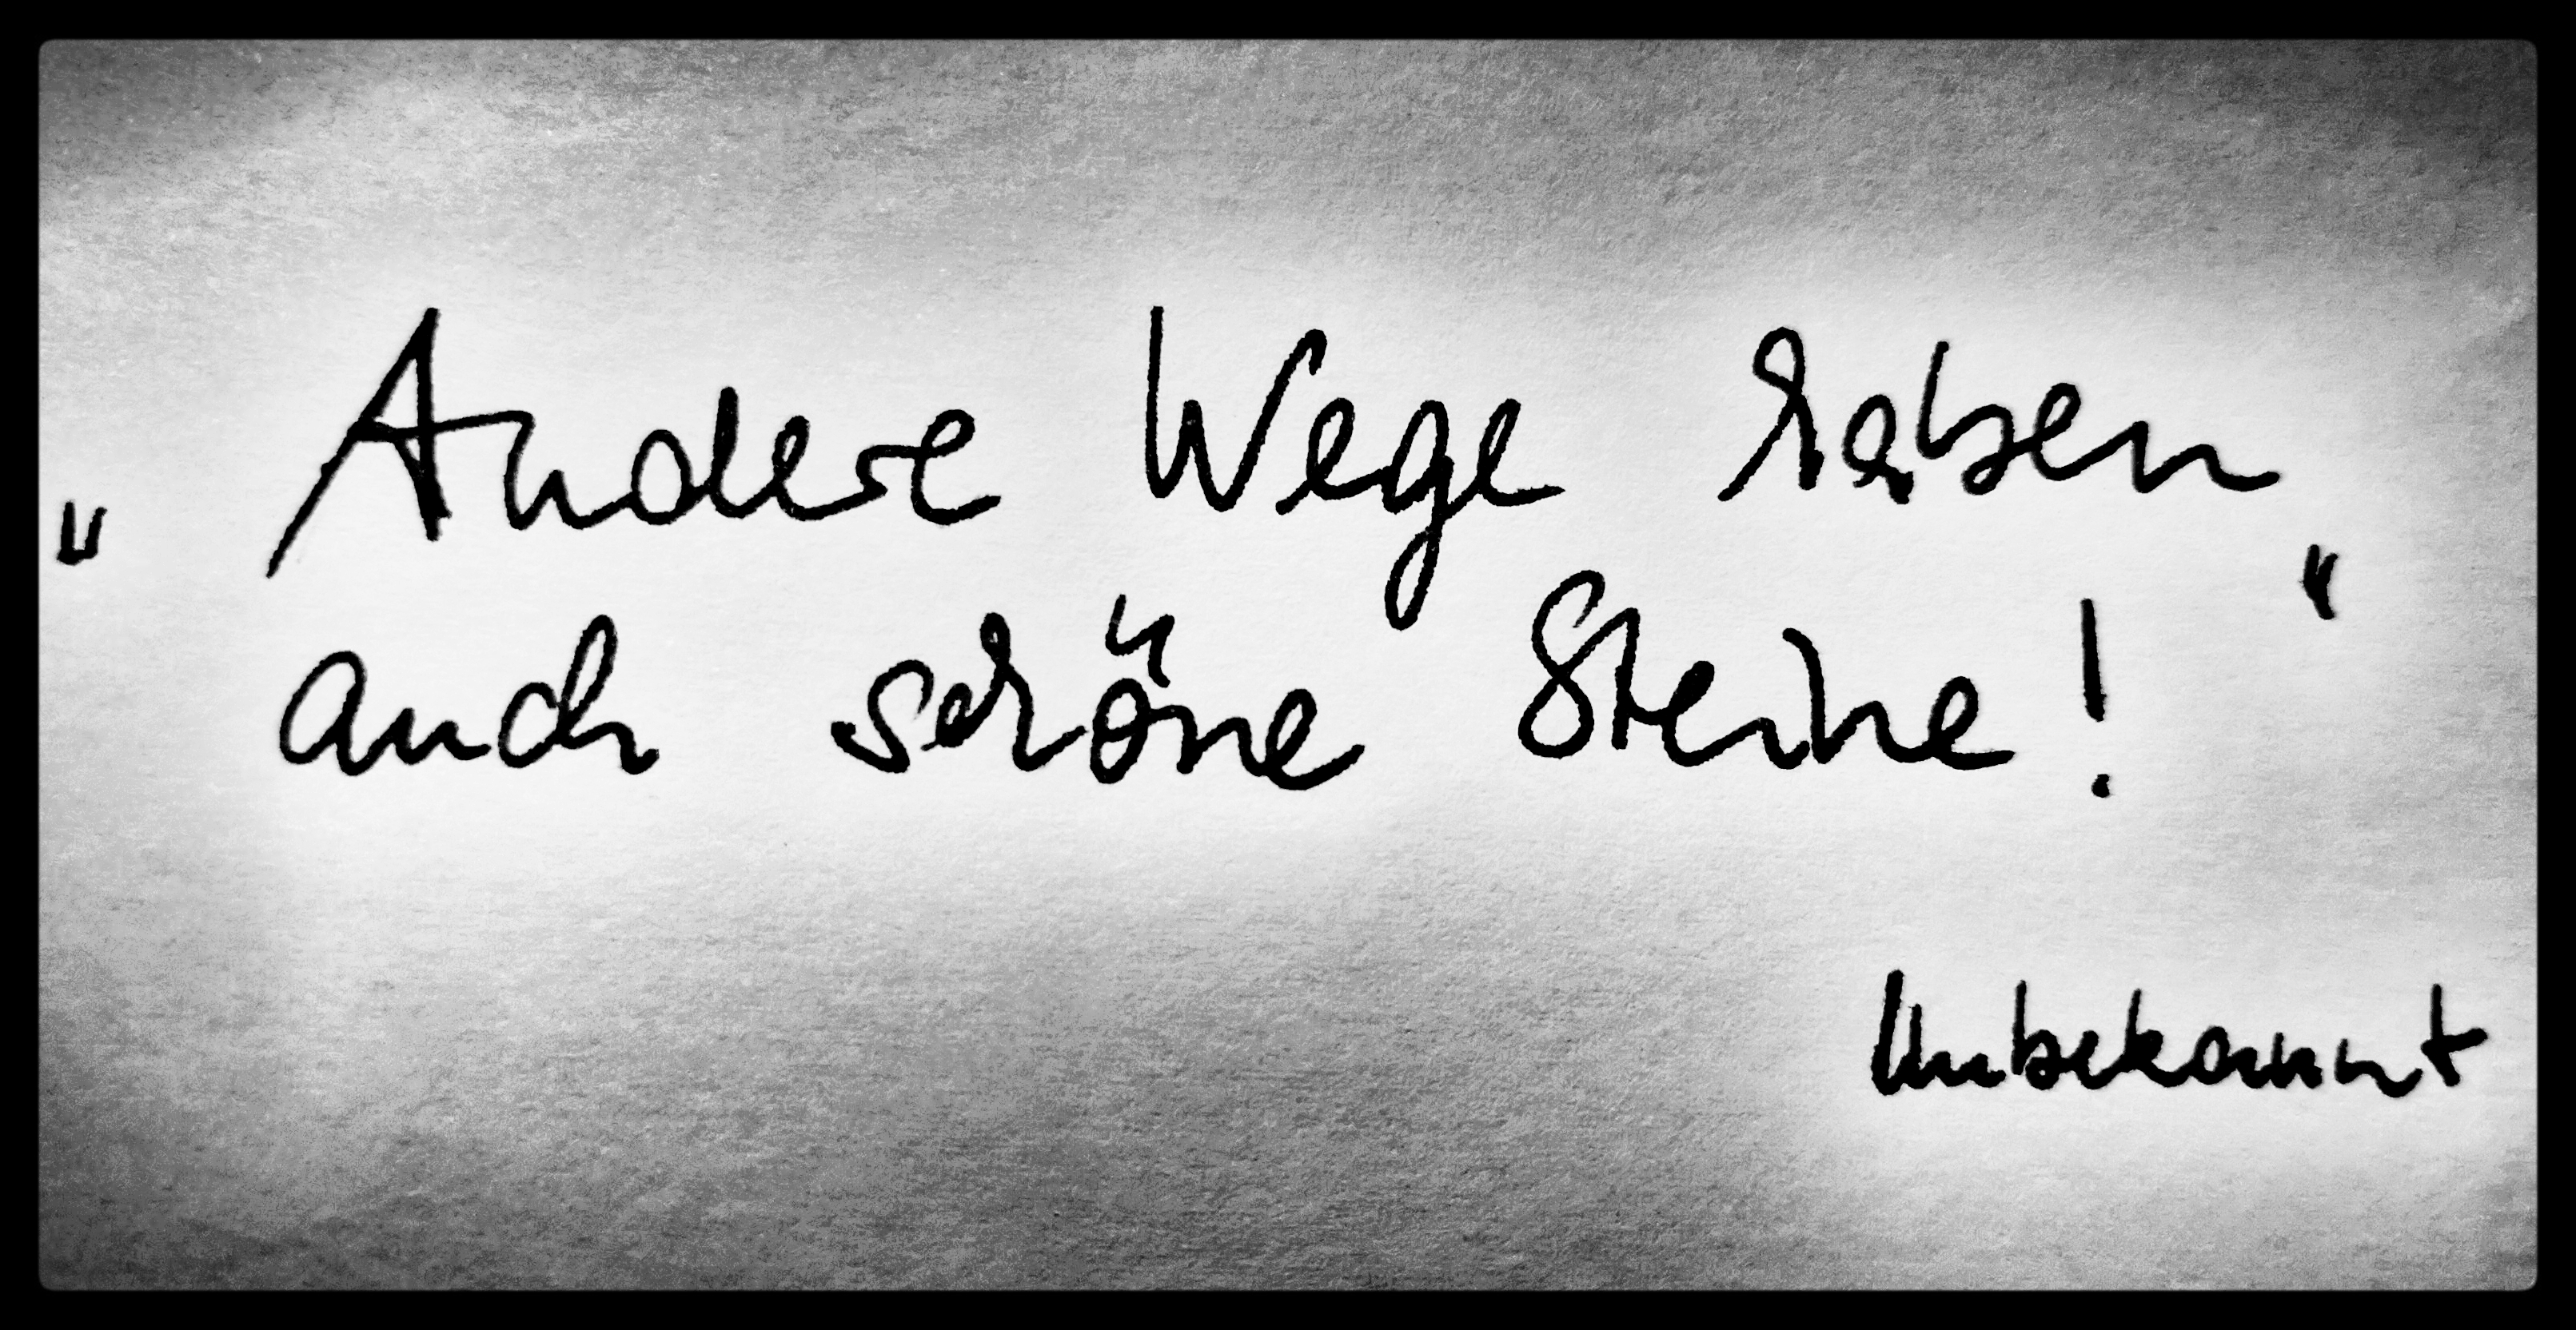 „ Andere Wege haben
auch schöne Steine! “
Unbekannt